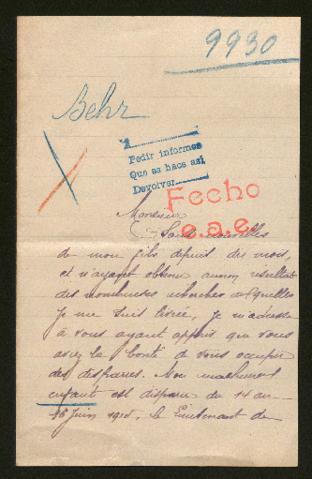 9930
Behr
Pedir informes
Que se hace así
Devolver
Fecho
e.a.e.
Monsieur
Sans nouvelles
de mon fils depuis des mois,
et n'ayant obtenu aucun résultat
des nombreuses recherches auxquelles
je me suis livrée, je m'adresse
à vous ayant appris que vous
avez la bonté de vous occuper
des disparus. Mon malheureux
enfant est disparu du 14 au
16 Juin 1915, le Lieutenant de